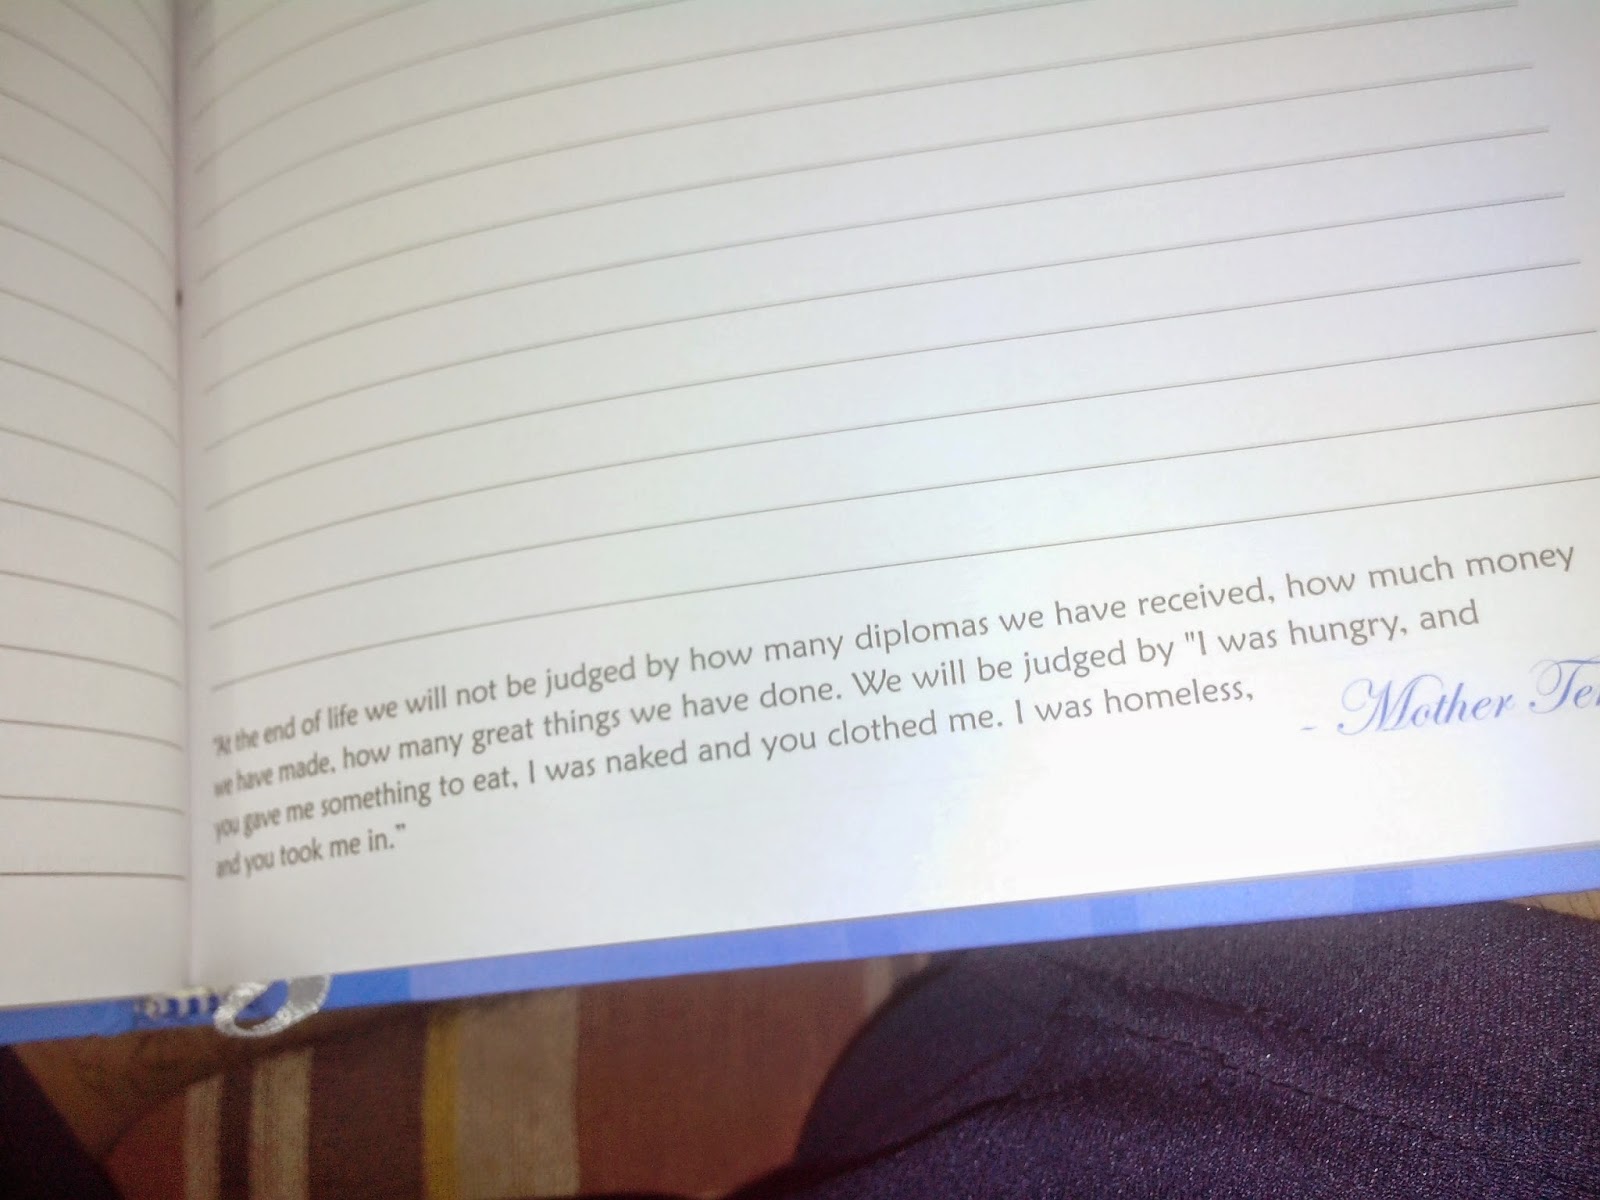 "At the end of life we will not be judged by how many diplomas we have received, how much money
we have made, how many great things we have done. We will be judged by "I was hungry, and
you gave me something to eat, I was naked and you clothed me. I was homeless,
and you took me in."
- Mother Te